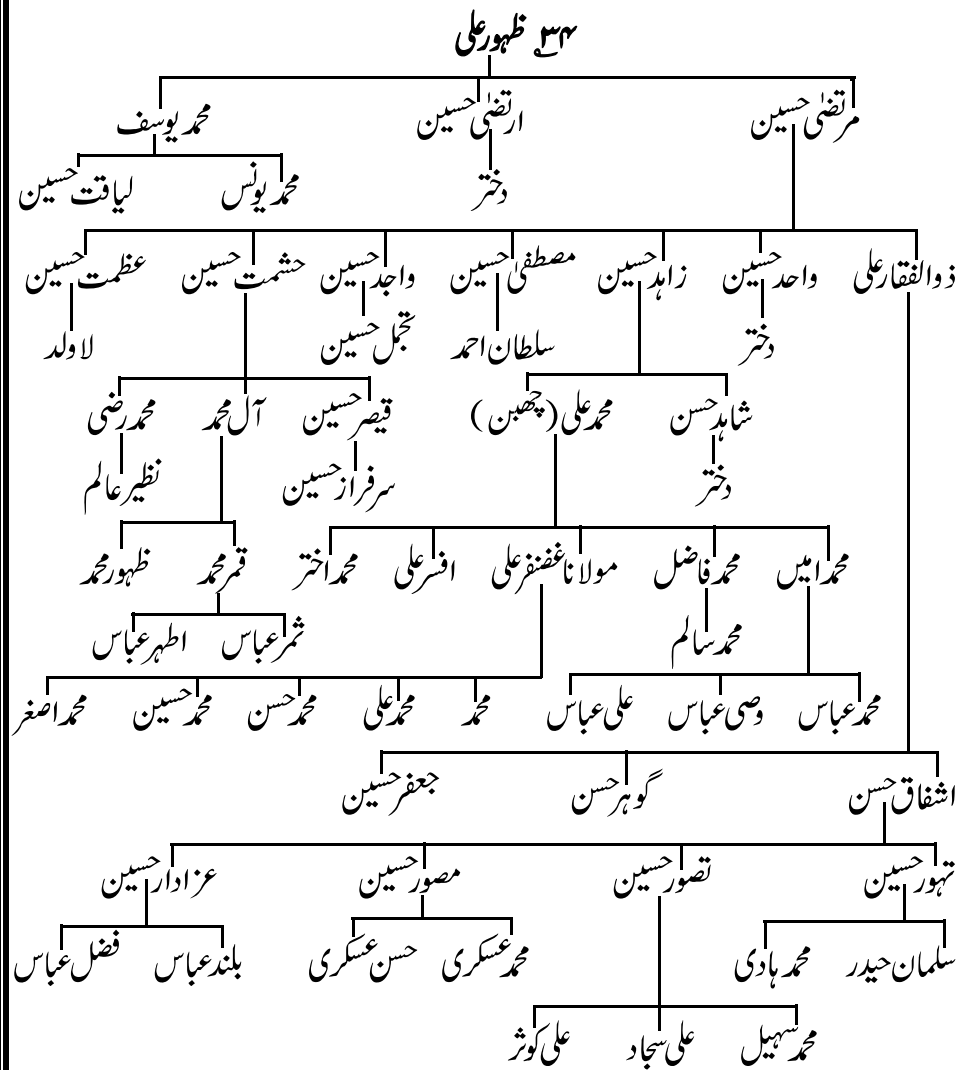 ۳۴ ظہور علی
مرتضیٰ حسین ارتضیٰ حسین محمد یوسف
دختر محمد یونس لیاقت حسین
ذوالفقار علی واحد حسین زاہد حسین مصطفیٰ حسین واجد حسین حشمت حسین عظمت حسین
دختر سلطان احمد تجمل حسین لا ولد
شاہد حسن محمد علی (چھبن) قیصر حسین آل محمد محمد رضی
دختر سرفراز حسین نظیر عالم
محمد امیں محمد فاضل مولانا غضنفر علی افسر علی محمد اختر قمر محمد ظہور محمد
محمد سالم ثمر عباس اطہر عباس
محمد عباس وصی عباس علی عباس محمد محمد علی محمد حسن محمد حسین محمد اصغر
اشفاق حسن گوہر حسن جعفر حسین
تہور حسین تصور حسین مصور حسین عزادار حسین
سلمان حیدر محمد ہادی محمد عسکری حسن عسکری بلند عباس فضل عباس
محمد سہیل علی سجاد علی کوثر